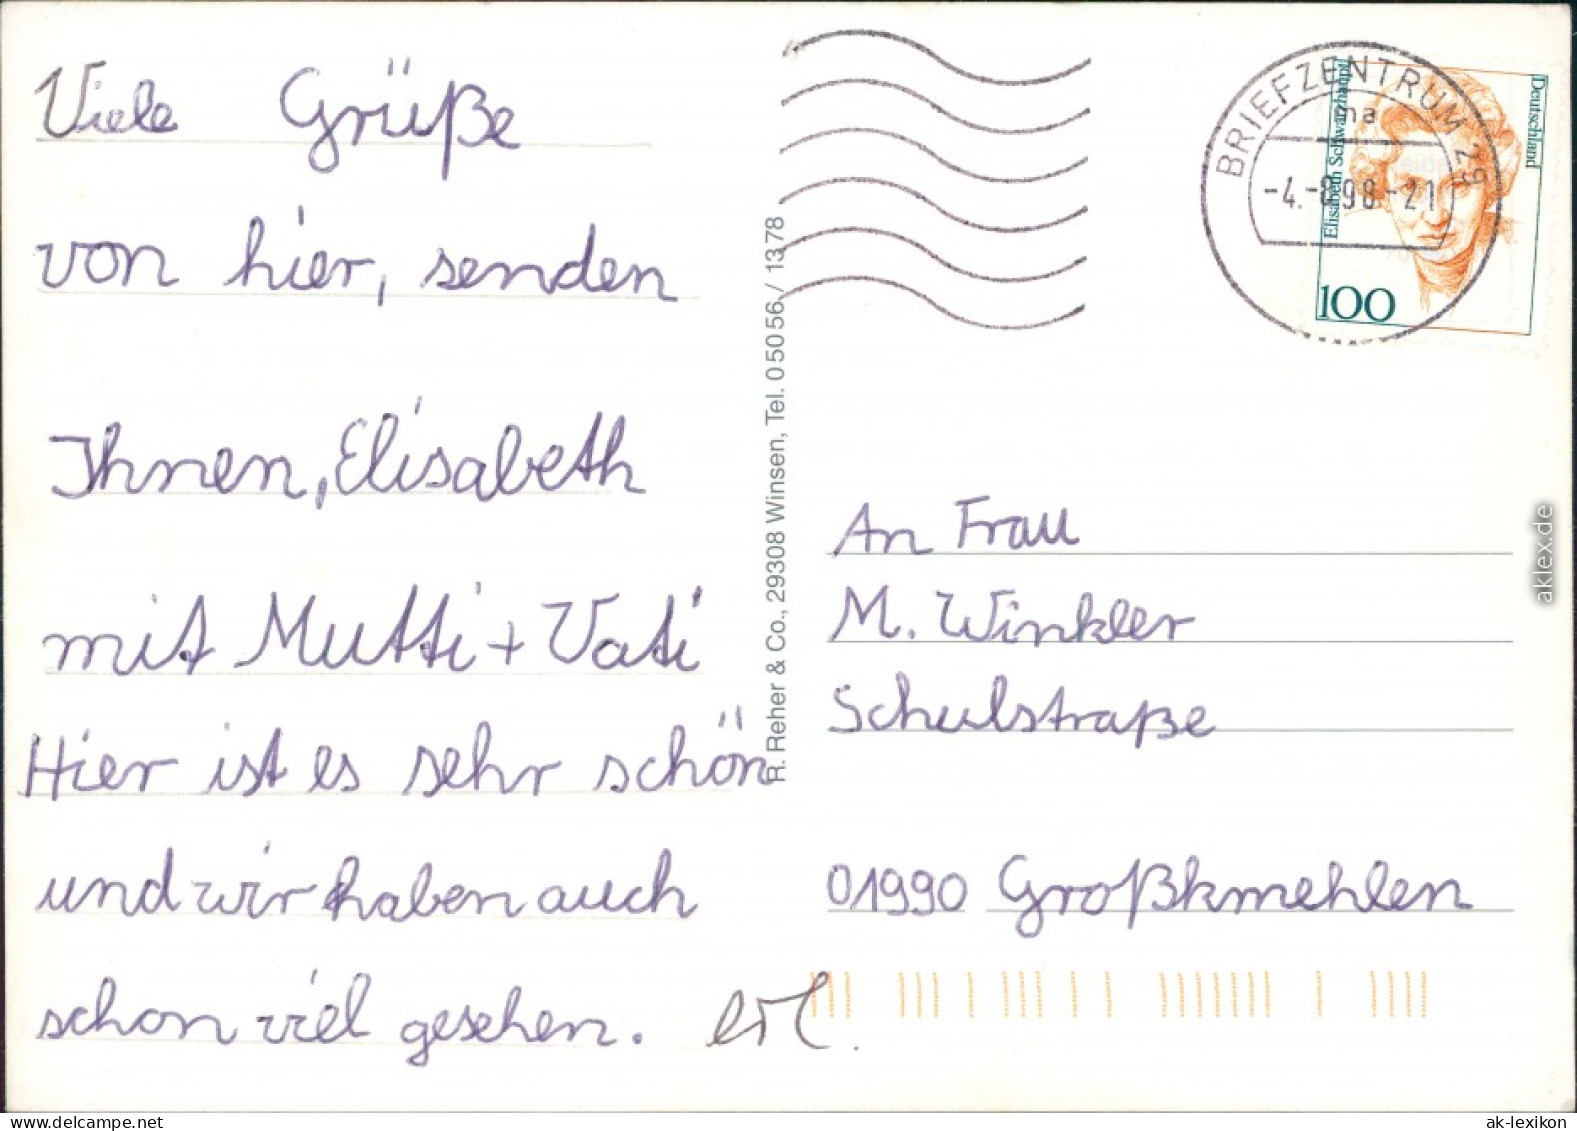 Viele Grüße
von hier, senden
Ihnen, Elisabeth
mit Mutti + Vati
Hier ist es sehr schön
und wir haben auch
schon viel gesehen. erl.
R. Reher & Co., 29308 Winsen, Tel. 0 50 56 / 13 78
BRIEFZENTRUM 29
ma
-4.-8.98.-21
Deutschland
Elisabeth Schwarzhaupt
100
An Frau
M. Winkler
Schulstraße
01990 Großkmehlen
aklex.de
ak-lexikon